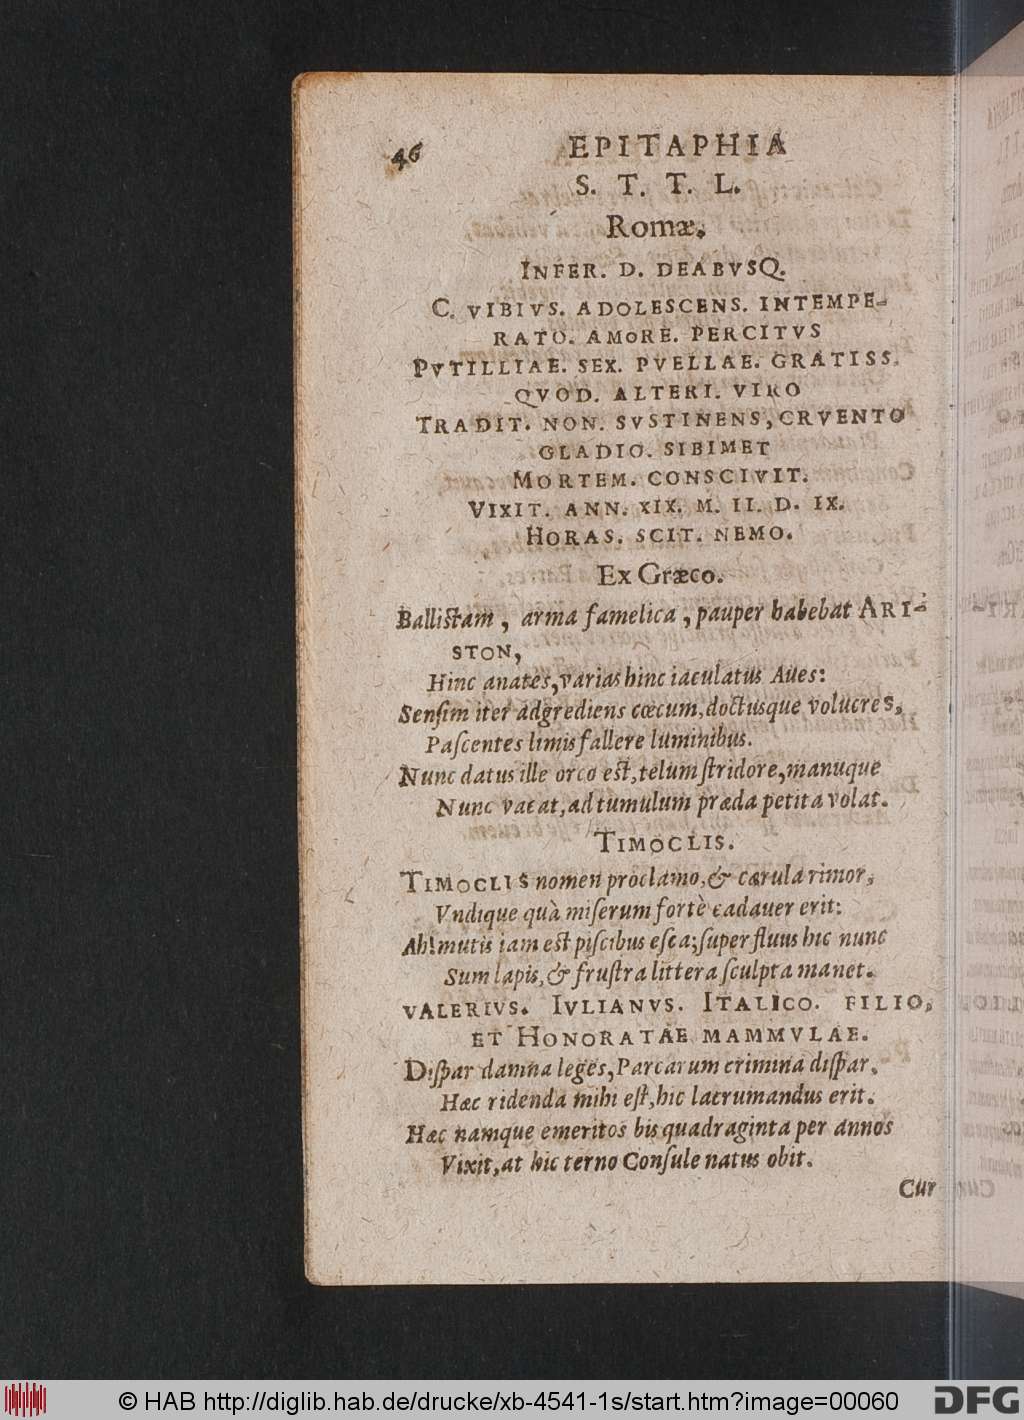 46 EPITAPHIA
S. T. T. L.
Romæ.
INFER. D. DEABVSQ.
C. VIBIVS. ADOLESCENS. INTEMPE-
RATO. AMORE. PERCITVS
PVTILLIAE. SEX. PVELLAE. GRATISS.
QVOD. ALTERI. VIRO
TRADIT. NON. SVSTINENS, CRVENTO
GLADIO. SIBIMET
MORTEM. CONSCIVIT.
VIXIT. ANN. XIX. M. II. D. IX.
HORAS. SCIT. NEMO.
Ex Græco.
Balliſtam, arma famelica, pauper habebat ARI-
STON,
Hinc anates, varias hinc iaculatus Aues:
Senſim iter adgrediens cœcum, doctusque volucres,
Paſcentes limis fallere luminibus.
Nunc datus ille orco eſt, telum ſtridore, manuque
Nunc vacat, ad tumulum præda petita volat.
TIMOCLIS.
TIMOCLIS nomen proclamo, & cærula rimor,
Vndique quà miſerum fortè cadauer erit:
Ah! mutis iam eſt piſcibus eſca; ſuperfluus hic nunc
Sum lapis, & fruſtra littera ſculpta manet.
VALERIVS. IVLIANVS. ITALICO. FILIO,
ET HONORATAE MAMMVLAE.
Diſpar damna leges, Parcarum crimina diſpar,
Hæc ridenda mihi eſt, hic lacrumandus erit.
Hæc namque emeritos bis quadraginta per annos
Vixit, at hic terno Conſule natus obit.
Cur
© HAB http://diglib.hab.de/drucke/xb-4541-1s/start.htm?image=00060 DFG